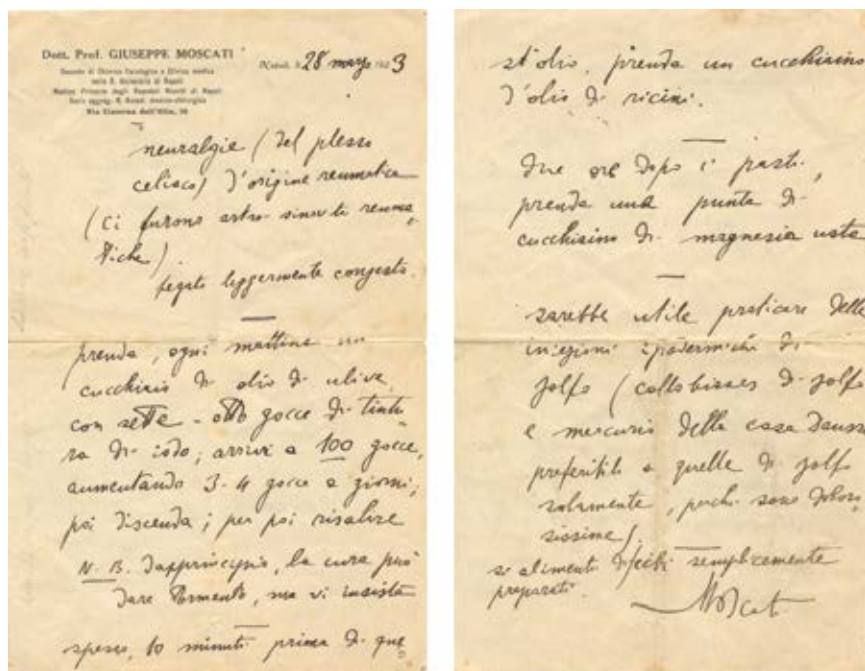 Dott. Prof. GIUSEPPE MOSCATI
Docente di Chimica fisiologica e Clinica medica
nella R. Università di Napoli
Medico Primario degli Ospedali Riuniti di Napoli
Socio aggreg. R. Accad. medico-chirurgica
Via Cisterna dell'Olio, 10
Napoli, li 28 marzo 1923
neuralgie (del plesso
celiaco) d'origine reumatica
(Ci furono artro sinoviti reuma
tiche).
fegato leggermente congesto.
prenda, ogni mattina un
cucchiaio di olio di ulive
con sette-otto gocce di tintu
ra di iodo; arrivi a 100 gocce,
aumentando 3-4 gocce a giorni;
poi discenda; per poi risalire
N.B. Dapprincipio, la cura può
dare tormento, ma vi insista
spesso, 10 minuti prima di que
st'olio, prenda un cucchiaino
d'olio di ricini.
due ore dopo i pasti,
prenda una punta di
cucchiaino di magnesia usta
sarebbe utile praticare delle
iniezioni ipodermiche di
solfo (collobiases di solfo
e mercurio della casa Dausse
preferibili a quelle di solfo
solamente, perchè sono doloro
sissime).
si alimenti di cibi semplicemente
preparati.
Moscati